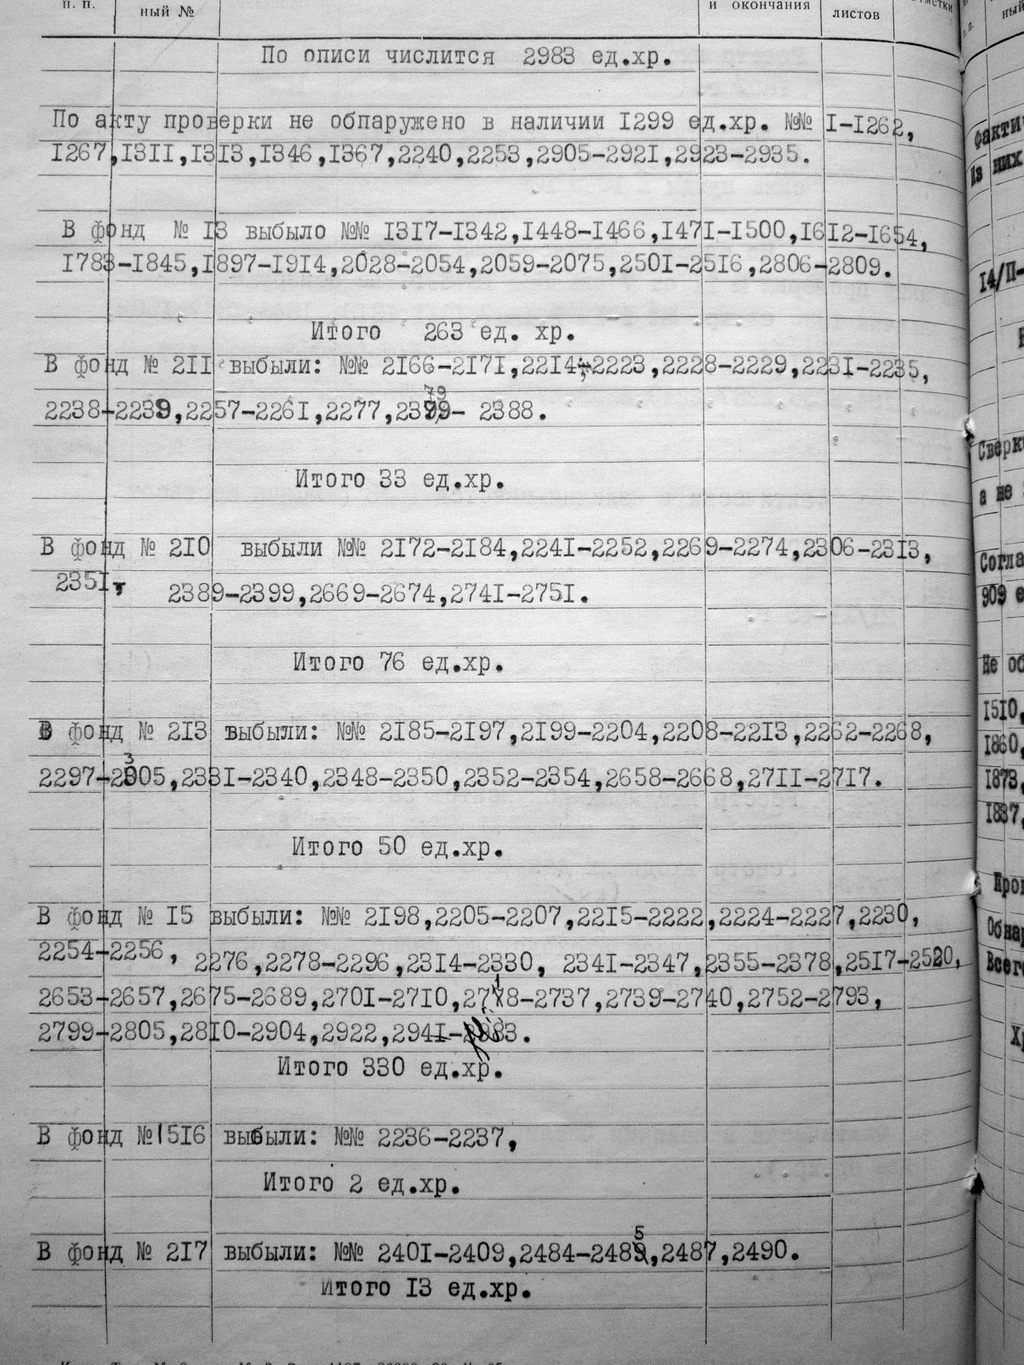 п. п.
ный №
и окончания
листов
По описи числится 2983 ед.хр.
По акту проверки не обпаружено в наличии I299 ед.хр. №№ I-I262,
I267,I3II,I3I3,I346,I367,2240,2253,2905-292I,2923-2935.
В фонд № I3 выбыло №№ I3I7-I342,I448-I466,I47I-I500,I6I2-I654,
I783-I845,I897-I9I4,2028-2054,2059-2075,250I-25I6,2806-2809.
Итого 263 ед. хр.
В фонд № 2II выбыли: №№ 2I66-2I7I,22I4,-2223,2228-2229,223I-2235,
2238-2239,2257-226I,2277,2379- 2388.
Итого 33 ед.хр.
В фонд № 2I0 выбыли №№ 2I72-2I84,224I-2252,2269-2274,2306-23I3,
235I, 2389-2399,2669-2674,274I-275I.
Итого 76 ед.хр.
В фонд № 2I3 выбыли: №№ 2I85-2I97,2I99-2204,2208-22I3,2262-2268,
2297-2305,233I-2340,2348-2350,2352-2354,2658-2668,27II-27I7.
Итого 50 ед.хр.
В фонд № I5 выбыли: №№ 2I98,2205-2207,22I5-2222,2224-2227,2230,
2254-2256, 2276,2278-2296,23I4-2330, 234I-2347,2355-2378,25I7-2520,
2653-2657,2675-2689,270I-27I0,2718-2737,2739-2740,2752-2793,
2799-2805,28I0-2904,2922,294I-2983.
Итого 330 ед.хр.
В фонд №1516 выбыли: №№ 2236-2237,
Итого 2 ед.хр.
В фонд № 2I7 выбыли: №№ 240I-2409,2484-2485,2487,2490.
Итого I3 ед.хр.
14/П-
Сверк
а не
Согла
909 е
Не об
1510,
1860,
1873,
1887,
Всего